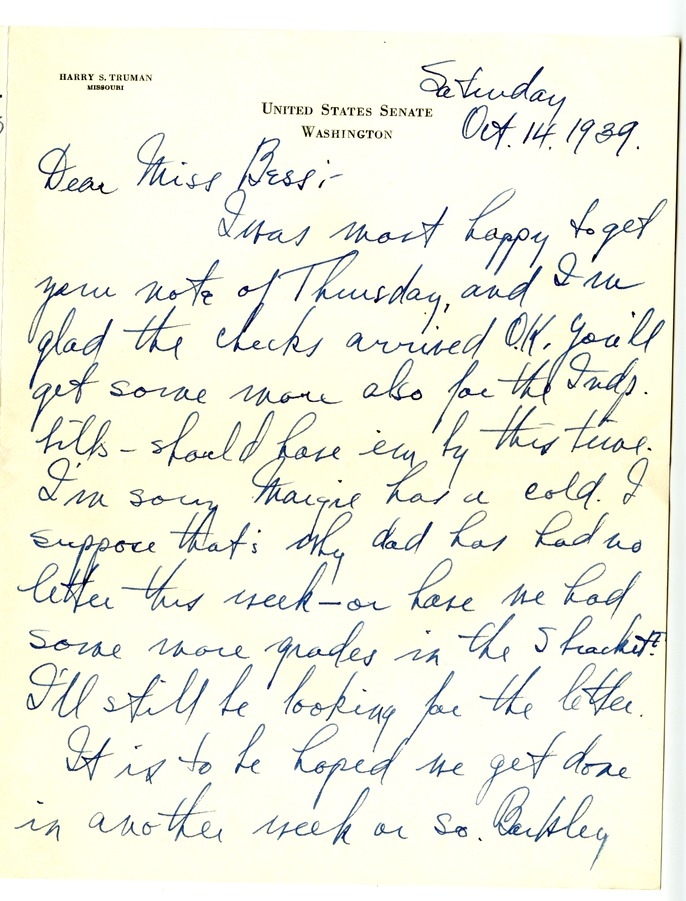 HARRY S. TRUMAN
MISSOURI
UNITED STATES SENATE
WASHINGTON
Saturday
Oct. 14, 1939.
Dear Miss Bess:-
I was most happy to get
your note of Thursday, and I'm
glad the checks arrived O.K. You'll
get some more also for the Indp.
bills - should have em by this time.
I'm sorry Margie has a cold. I
suppose that's why dad has had no
letter this week - or have we had
some more grades in the S bracket?
I'll still be looking for the letter.
It is to be hoped we get done
in another week or so. Barkley